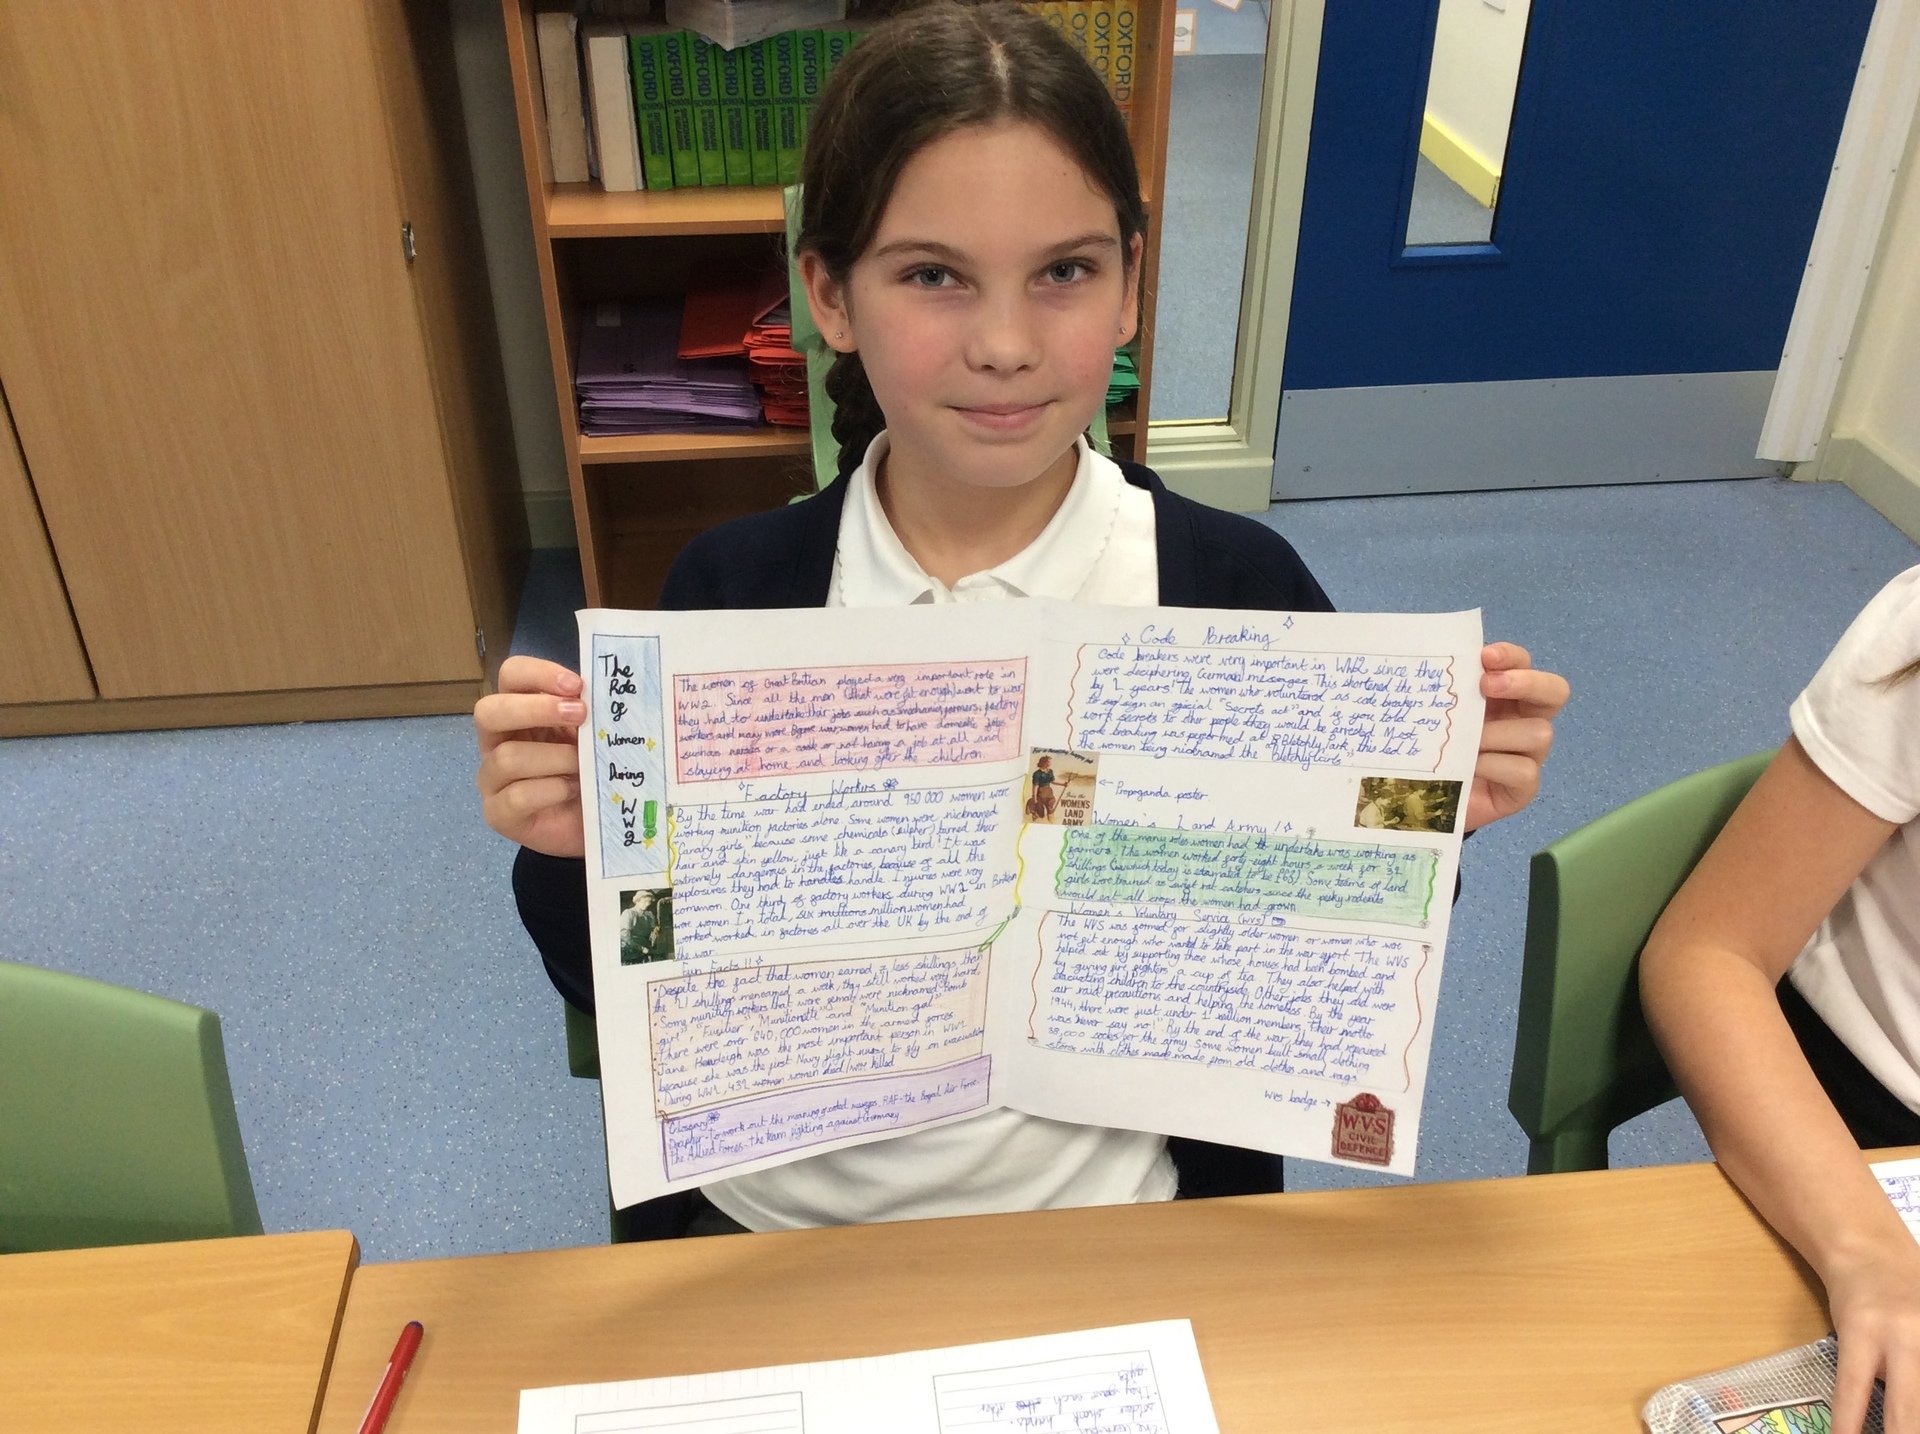 The
Role
Of
Women
During
WW2!
The women of Great Britian played a very important role in
WW2. Since all the men (that were fit enough) went to war,
they had to undertake thier jobs such as mechanics, farmers, factory
workers and many more. Before war, women had to have domestic jobs
such as nannies or a cook or not having a job at all and
staying at home and looking after the children.
Factory Workers
By the time war had ended, around 950 000 women were
working munition factories alone. Some women were nicknamed
"Canary girls" because some chemicals (sulpher) turned their
hair and skin yellow, just like a canary bird! It was
extremely dangerous in the factories, because of all the
explosives they had to handles handle. Injuries were very
common. One third of factory workers during WW2 in Britian
were women In total, six millions million women had
worked worked in factories all over the UK by the end of
the war.
Fun Facts!!
• Despite the fact that women earned less shillings than
the shillings men earned a week, they still worked very hard.
• Some munition workers that were female were nicknamed "Bomb
girl", "Fusilier", "Munitionette" and "Munition gal"
• There were over 640,000 women in the armed forces
• Jane Kendeigh was the most important person in WW2
because she was the first Navy flight nurse to fly an evacuation
• During WW2, 432 women women died/were killed.
Glossary
Decipher - To work out the meaning of coded messages. RAF - the Royal Air Force.
the Allied Forces - the team fighting against Germany
Code Breaking
Code breakers were very important in WW2 since they
were deciphering German messages. This shortened the war
by 2 years! The women who volunteered as code breakers had
to sign an official "Secrets act" and if you told any
work secrets to other people they would be arrested. Most
code breaking was performed at "Bletchly Park", this led to
the women being nicknamed the "Bletchly Girls".
WOMEN'S
LAND
ARMY
← Propaganda poster.
Women's Land Army!
One of the many roles women had to undertake was working as
farmers! The women worked forty-eight hours a week for 32
shillings (which today is estamated to be £63) Some teams of land
girls were trained as swift rat catchers since the pesky rodents
would eat all crops the women had grown.
Women's Voluntary Service (WVS)
The WVS was formed for slightly older women or women who were
not fit enough who wanted to take part in the war effort. The WVS
helped out by supporting those whose houses had been bombed and
by giving fire fighters a cup of tea. They also helped with
evacuating children to the countryside. Other jobs they did were
air raid precautions and helping the homeless. By the year
1944, there were just under 1 million members. Their motto
was "Never say no!" By the end of the war, they had repaired
38,000 socks for the army. Some women built small clothing
stores with clothes made made from old clothes and rags.
WVS badge →
W·V·S
CIVIL
DEFENCE
OXFORD
OXFORD
OXFORD
OXFORD
OXFORD
OXFORD
OXFORD
They gave each other
gifts
soldier shook hands.